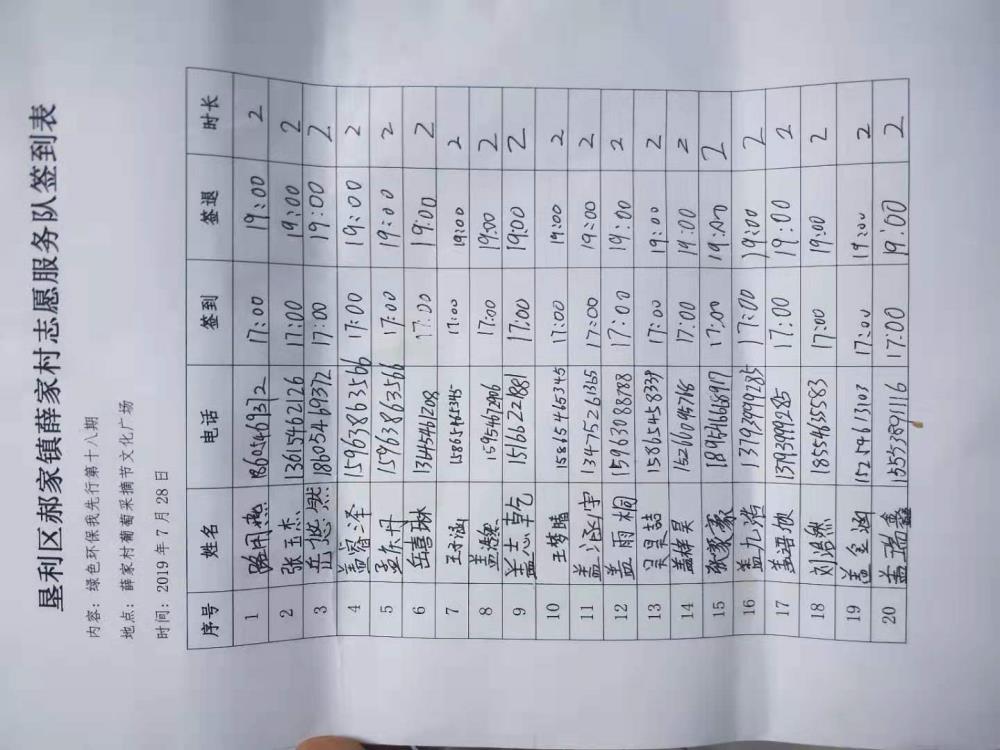 垦利区郝家镇薛家村志愿服务队签到表
内容：绿色环保我先行第十八期
地点：薛家村葡萄采摘节文化广场
时间：2019年7月28日
序号 姓名 电话 签到 签退 时长
1 18605469372 17:00 19:00 2
2 张玉杰 13615462126 17:00 19:00 2
3 岳悠然 18605469372 17:00 19:00 2
4 盖睿泽 15963863566 17:00 19:00 2
5 孟乐丹 15963863566 17:00 19:00 2
6 岳喜琳 13445461208 17:00 19:00 2
7 王子涵 15865465345 17:00 19:00 2
8 盖浩然 17:00 19:00 2
9 盖志乾 15166221881 17:00 19:00 2
10 王梦晴 15865465345 17:00 19:00 2
11 13475261365 17:00 19:00 2
12 盖雨桐 15963088788 17:00 19:00 2
13 吴昊喆 15865458339 17:00 19:00 2
14 17:00 19:00 2
15 张家豪 17:00 19:00 2
16 盖九浩 13793999285 17:00 19:00 2
17 13793999285 17:00 19:00 2
18 刘浩然 18554635583 17:00 19:00 2
19 盖金涵 15254613103 17:00 19:00 2
20 盖瑞鑫 15553891116 17:00 19:00 2